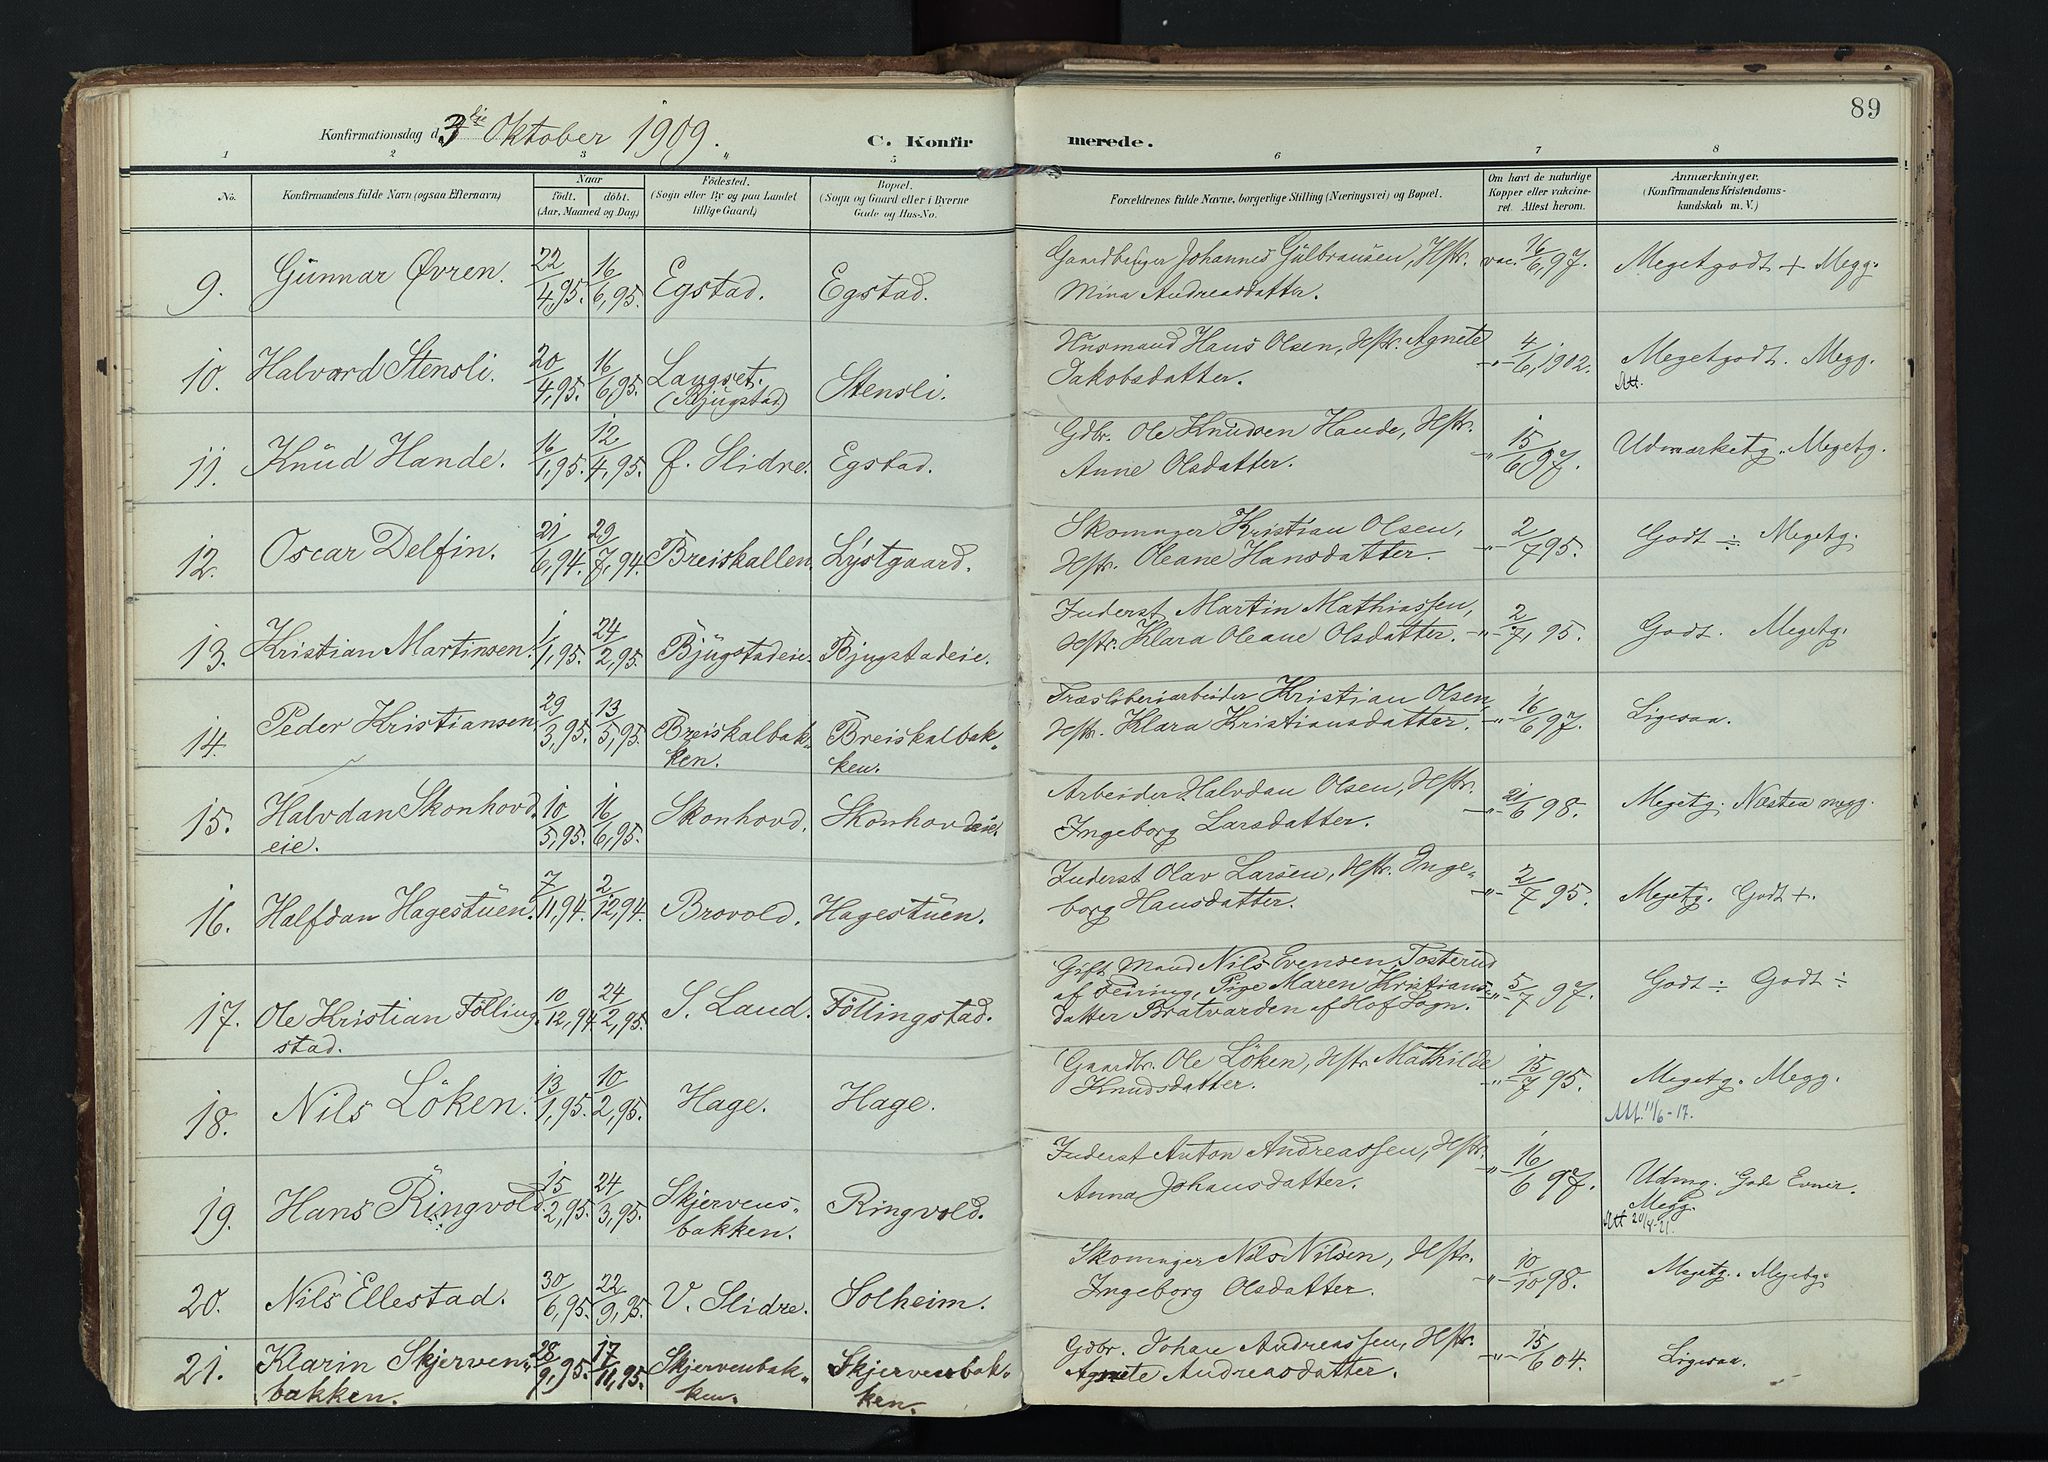 89
Konfirmationsdag d. 3die Oktober 1909.
C. Konfirmerede.
1 2 3 4 5 6 7 8
No.
Konfirmandens fulde Navn (ogsaa Efternavn)
Naar
födt. döbt.
(Aar, Maaned og Dag)
Födested.
(Sogn eller By og paa Landet
tillige Gaard)
Bopæl.
(Sogn og Gaard eller i Byerne
Gade og Hus-No.
Forældrenes fulde Navne, borgerlige Stilling (Næringsvei) og Bopæl.
Om havt de naturlige
Kopper eller vakcine-
ret. Attest herom.
Anmærkninger.
(Konfirmandens Kristendoms-
kundskab m. V.)
9. Gunnar Øvren. 22/4,95. 16/6,95. Egstad. Egstad. Gaardbruger Johannes Gulbransen, Hstr. vac. 16/6,97. Megetgodt + Megg.
Mina Andreasdatter.
10. Halvard Stensli. 20/4,95. 16/6,95. Langset. Stensli. Husmand Hans Olsen, Hstr. Agnete -"- 4/6,1902. Megetgodt. Megg.
(Bjugstad) Jakobsdatter. Att.
11. Knud Hande. 16/1,95. 12/4,95. Ø. Slidre. Egstad. Gdbr. Ole Knudsen Hande, Hstr. -"- 15/6 97. Udmærketg. Megetg.
Anne Olsdatter.
12. Oscar Delfin. 21/6,94. 29/7,94. Breiskallen. Lystgaard. Skomager Kristian Olsen, -"- 2/7 95. Godt ÷ Megetg.
Hstr. Oleane Hansdatter.
13. Kristian Martinsen. 1/1,95. 24/2,95. Bjugstadeie. Bjugstadeie. Inderst Martin Mathiassen, -"- 2/7,95. Godt. Megetg.
Hstr. Klara Oleane Olsdatter.
14. Peder Kristiansen. 29/3,95. 13/5,95. Breiskalbak- Breiskalbak- Træsliberiarbeider Kristian Olsen, -"- 16/6 97. Ligesaa.
ken. ken. Hstr. Klara Kristiansdatter.
15. Halvdan Skonhovd. 10/5,95. 16/6,95. Skonhovd. Skonhovdeie. Arbeider Halvdan Olsen, Hstr. -"- 21/6 98. Megetg. Næsten megg.
eie. Ingeborg Larsdatter.
16. Halfdan Hagestuen. 7/11,94. 2/12,94. Brovold. Hagestuen. Inderst Olav Larsen, Hstr. Inge- -"- 2/7 95. Megetg. Godt +.
borg Hansdatter.
17. Ole Kristian Fölling- 10/12,94 24/2,95. S. Land. Föllingstad. Gift Mand Nils Evensen Tosterud -"- 5/7 97. Godt ÷ Godt ÷
stad. af Feiring, Pige Maren Kristians-
datter Bratvarden af Hof Sogn.
18. Nils Löken. 13/1,95. 10/2,95. Hage. Hage. Gaardbr. Ole Löken, Hstr. Mathilde -"- 15/7 95. Megetg. Megg.
Knudsdatter. Att. 11/6-17.
19. Hans Ringvold. 15/2,95. 24/3,95. Skjervens- Ringvold. Inderst Anton Andreassen, Hstr. -"- 16/6 97. Udmg. Gode Evner.
bakken. Anna Johansdatter. Megg.
Att 20/8-21.
20. Nils Ellestad. 30/6,95. 22/9,95. V. Slidre. Solheim. Skomager Nils Nilsen, Hstr. -"- 10/10 98. Megetg. Megetg.
Ingeborg Olsdatter.
21. Klarin Skjerven- 28/9,95. 17/11,95. Skjervenbak- Skjervenbak- Gdbr. Johan Andreassen, Hstr. -"- 15/6 04. Ligesaa.
bakken. ken. ken. Agnete Andreasdatter.